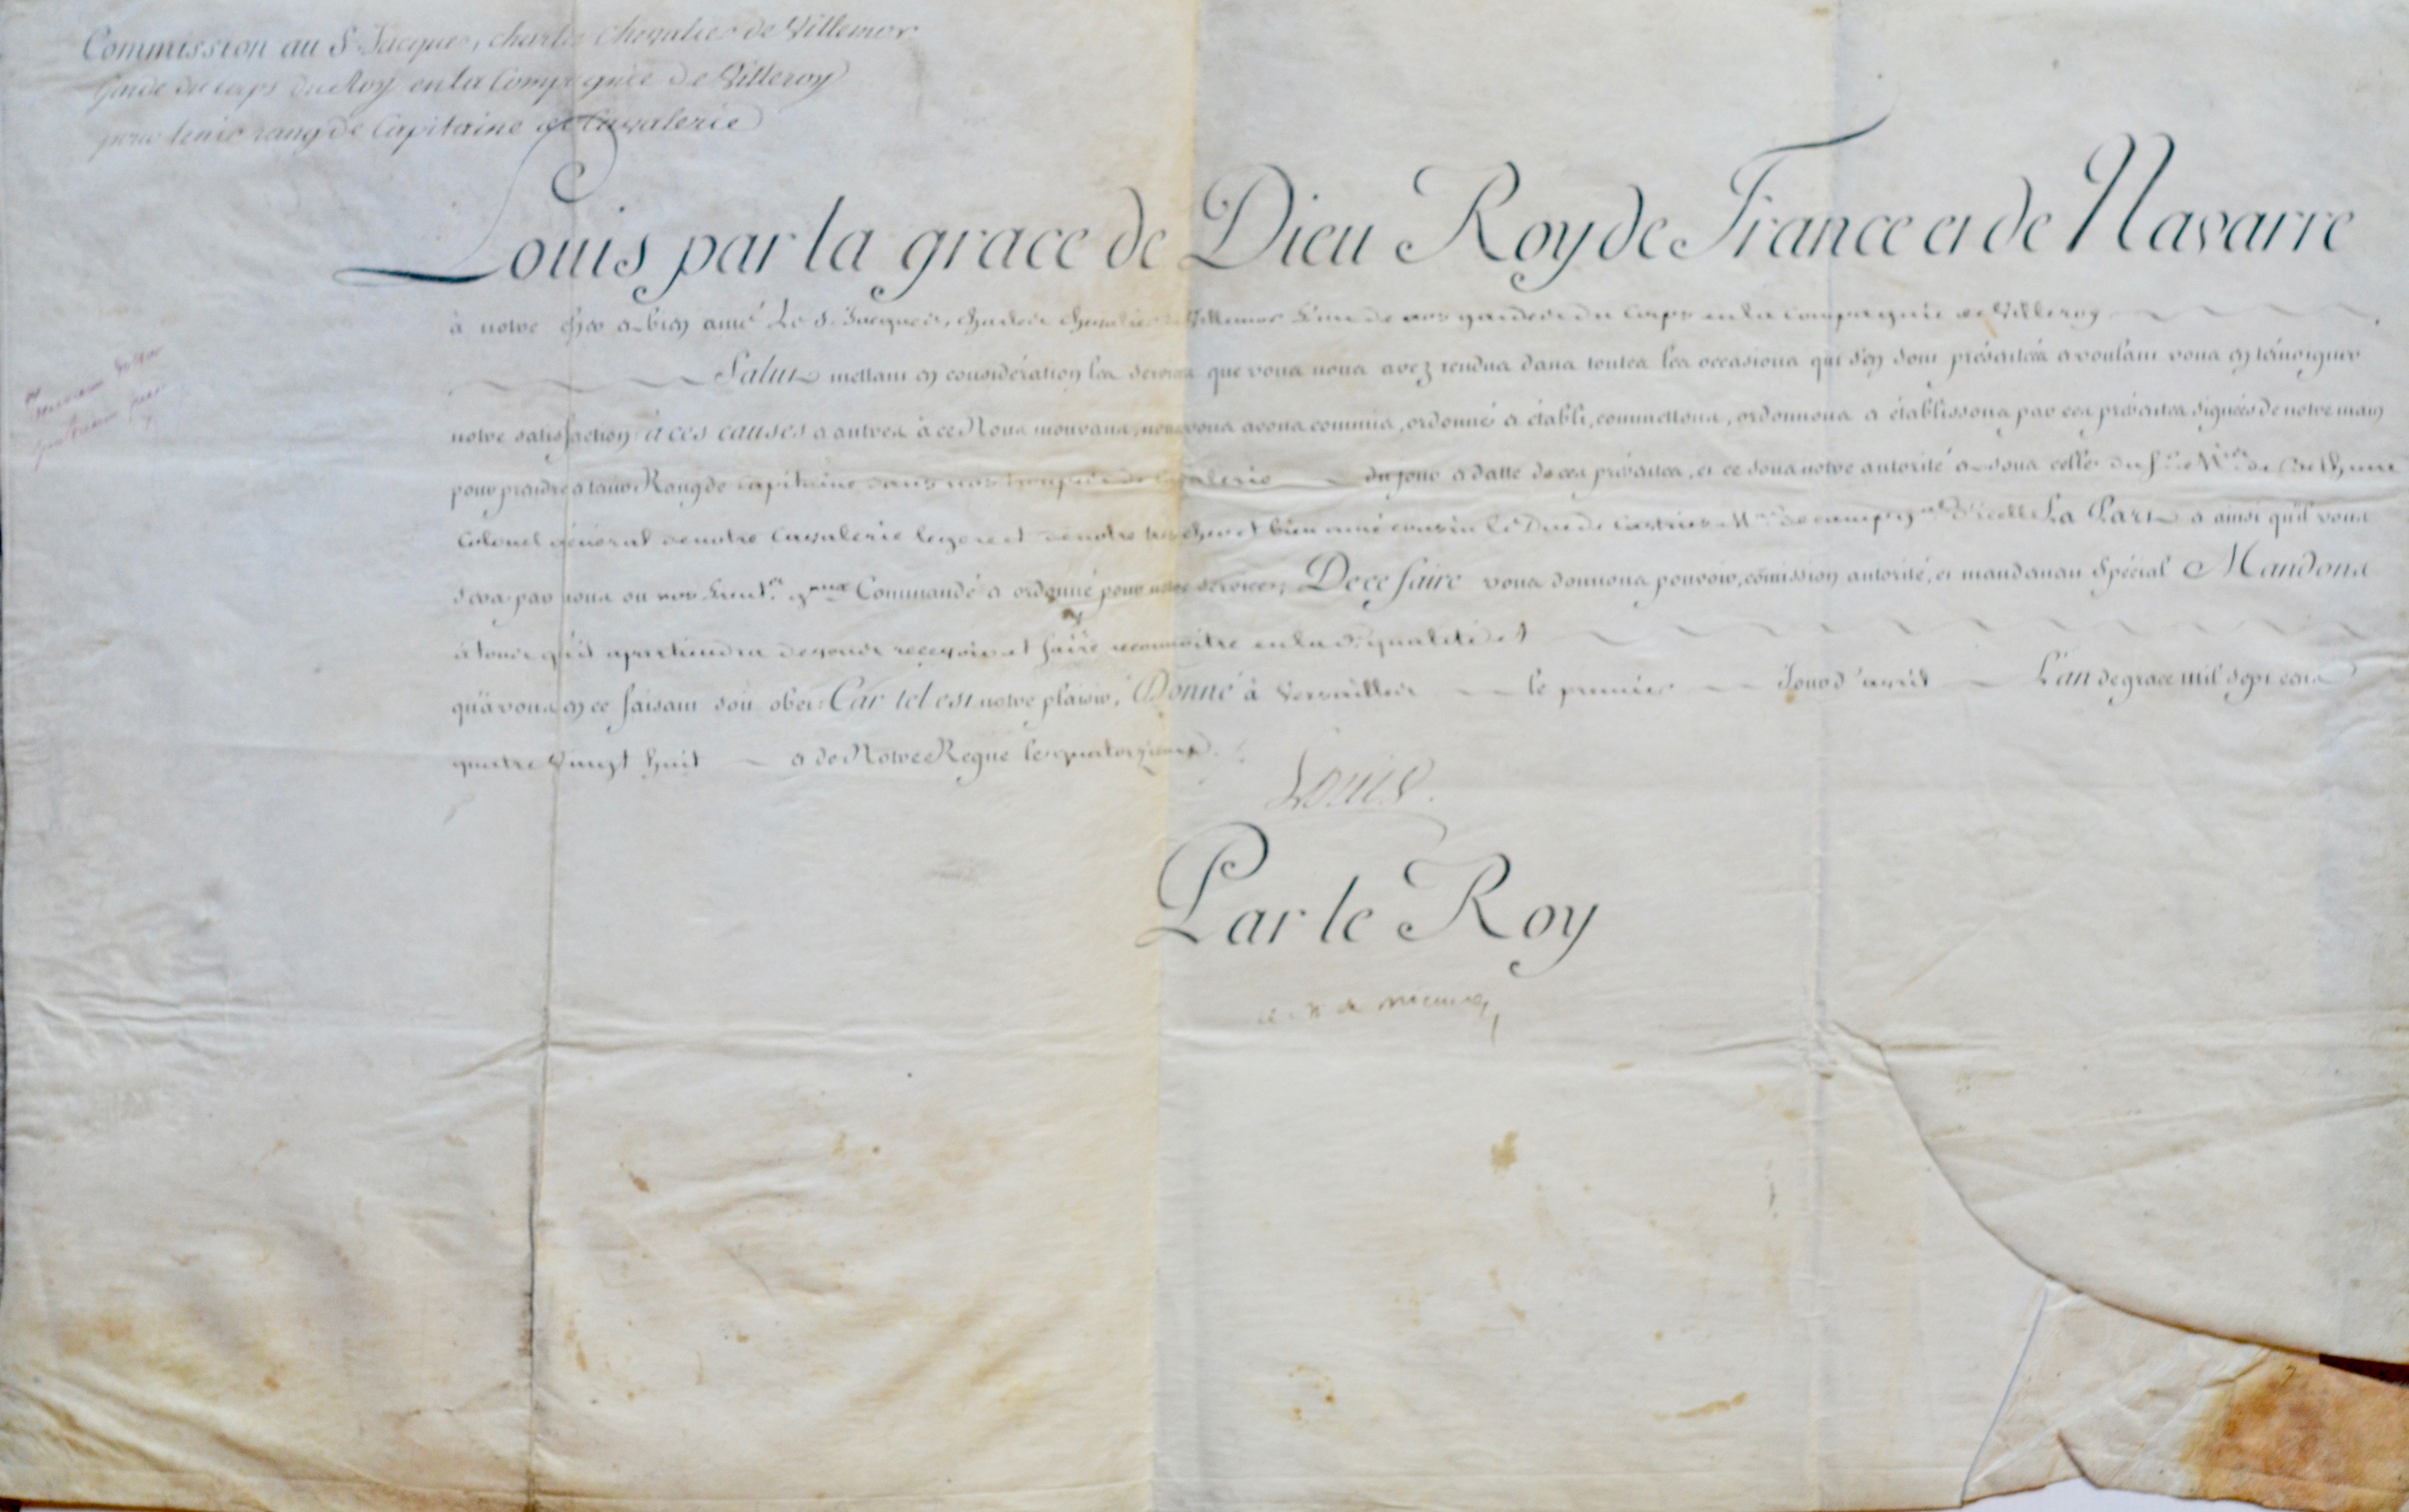 Commission au S. Jacques, charles Chevalier de Villemor
Garde du corps du Roy en la Compagnie de Villeroy
pour tenir rang de Capitaine de Cavalerie
Louis par la grace de Dieu Roy de France et de Navarre
à notre cher et bien amé Le S. Jacques, charles chevalier de Villemor L'un de nos gardes du Corps en la compagnie de Villeroy
Salut mettant en considération les services que vous nous avez rendus dans toutes les occasions qui s'en sont présentées et voulant vous en témoigner
notre satisfaction à ces causes et autres à ce Nous mouvans, nous vous avons commis, ordonné et établi, commettons, ordonnons et établissons par ces présentes signées de notre main
pour prendre et tenir Rang de capitaine dans nos troupes de Cavalerie du jour et datte de ces présentes, et ce sous notre autorité et sous celle du S. Mis. de Bethune
Colonel général de notre Cavalerie legere et de notre tres cher et bien amé cousin le Duc de Castries Me. de camp gnal d'icelle La Part et ainsi qu'il vous
sera par nous ou nos Lieuts. gnaux Commandé et ordonné pour notre service; De ce faire vous donnons pouvoir, comission autorité, et mandement Spécial Mandons
à tous qu'il apartiendra de vous recevoir et faire reconnoitre en la d. qualité et
qu'à vous en ce faisant soit obei: Car tel est notre plaisir, Donné à Versailles le premier Jour d'avril L'an de grace mil sept cens
quatre Vingt huit et de Notre Regne le quatorzieme.
Louis
Par le Roy